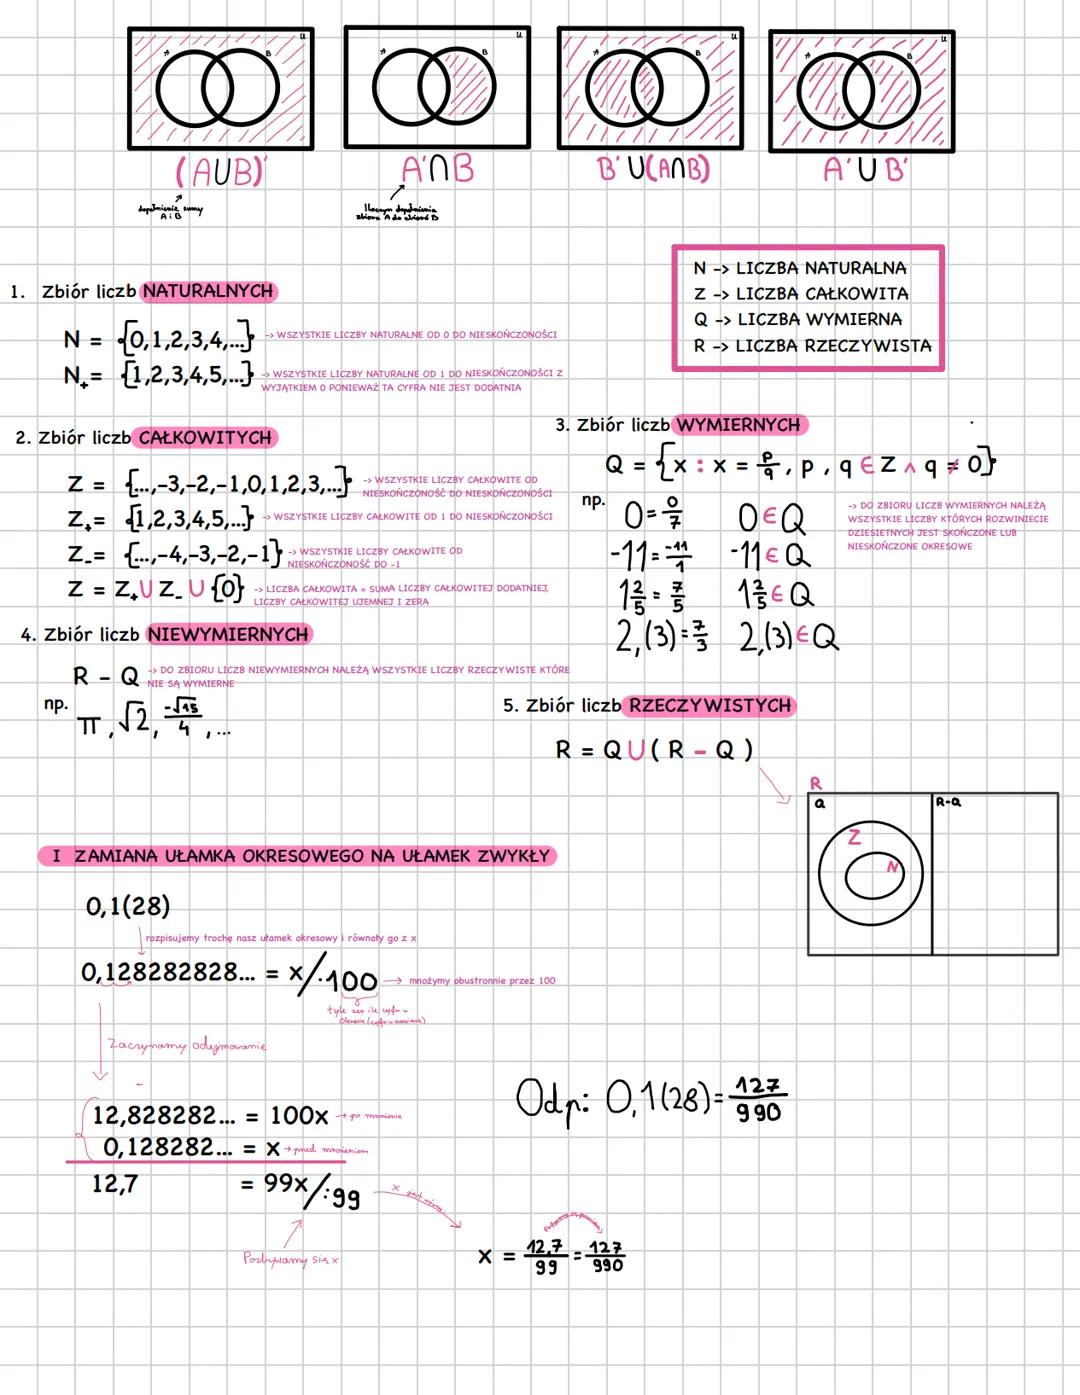 A B U
A B U
A B U
A B U
(A∪B)'
A'∩B
B'∪(A∩B)
A'∪B'
dopełnienie sumy
A i B
Iloczyn dopełnienia
zbioru A do zbioru B
N -> LICZBA NATURALNA
Z -> LICZBA CAŁKOWITA
Q -> LICZBA WYMIERNA
R -> LICZBA RZECZYWISTA
1. Zbiór liczb NATURALNYCH
N = {0,1,2,3,4,...} -> WSZYSTKIE LICZBY NATURALNE OD 0 DO NIESKOŃCZONOŚCI
N₊= {1,2,3,4,5,...} -> WSZYSTKIE LICZBY NATURALNE OD 1 DO NIESKOŃCZONOŚCI Z
WYJĄTKIEM 0 PONIEWAŻ TA CYFRA NIE JEST DODATNIA
2. Zbiór liczb CAŁKOWITYCH
Z = {...,-3,-2,-1,0,1,2,3,...} -> WSZYSTKIE LICZBY CAŁKOWITE OD
NIESKOŃCZONOŚĆ DO NIESKOŃCZONOŚCI
Z₊= {1,2,3,4,5,...} -> WSZYSTKIE LICZBY CAŁKOWITE OD 1 DO NIESKOŃCZONOŚCI
Z₋= {...,-4,-3,-2,-1} -> WSZYSTKIE LICZBY CAŁKOWITE OD
NIESKOŃCZONOŚĆ DO -1
Z = Z₊∪Z₋∪{0} -> LICZBA CAŁKOWITA = SUMA LICZBY CAŁKOWITEJ DODATNIEJ,
LICZBY CAŁKOWITEJ UJEMNEJ I ZERA
3. Zbiór liczb WYMIERNYCH
Q = {x : x = p/q, p, q ∈ Z ∧ q ≠ 0}
np.
0=0/7 0∈Q
-11=-11/1 -11∈Q
1 2/5 = 7/5 1 2/5 ∈ Q
2,(3)=7/3 2,(3)∈Q
-> DO ZBIORU LICZB WYMIERNYCH NALEŻĄ
WSZYSTKIE LICZBY KTÓRYCH ROZWINIECIE
DZIESIETNYCH JEST SKOŃCZONE LUB
NIESKOŃCZONE OKRESOWE
4. Zbiór liczb NIEWYMIERNYCH
R - Q -> DO ZBIORU LICZB NIEWYMIERNYCH NALEŻĄ WSZYSTKIE LICZBY RZECZYWISTE KTÓRE
NIE SĄ WYMIERNE
np.
π, √2, -√15/4, ...
5. Zbiór liczb RZECZYWISTYCH
R = Q∪( R - Q )
R
Q R-Q
Z
N
I ZAMIANA UŁAMKA OKRESOWEGO NA UŁAMEK ZWYKŁY
0,1(28)
rozpisujemy trochę nasz ułamek okresowy i równały go z x
0,128282828... = x/·100 → mnożymy obustronnie przez 100
tyle zer ile cyfr w
okresie (cyfr w nawiasie)
Zaczynamy odejmowanie
-
12,828282... = 100x → po mnożeniu
0,128282... = x → przed mnożeniem
12,7 = 99x/:99
x jest równy
Pozbywamy się x
x = 12,7/99 = 127/990
Odp: 0,1(28)=127/990